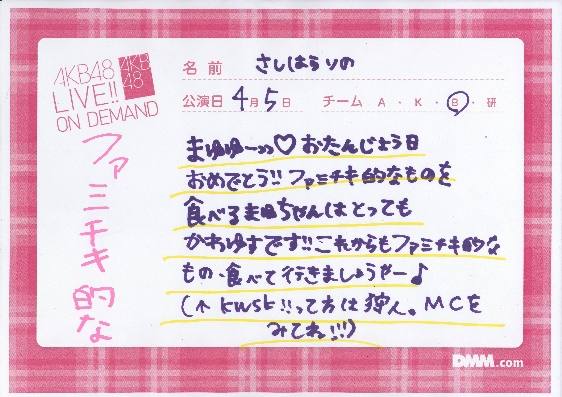 AKB48
LIVE!!
ON DEMAND
AKB
48
名前 さしはらりの
公演日 4月5日 チーム A・K・B・研
まゆゆーッ♡おたんじょう日
おめでとう!!ファミチキ的なものを
食べるまゆちゃんはとっても
かわゆすです!!これからもファミチキ的な
もの、食べて行きましょうやー♪
(↑kwsk!!って方は狩人。MCを
みてね!!!)
ファミチキ的な
DMM.com